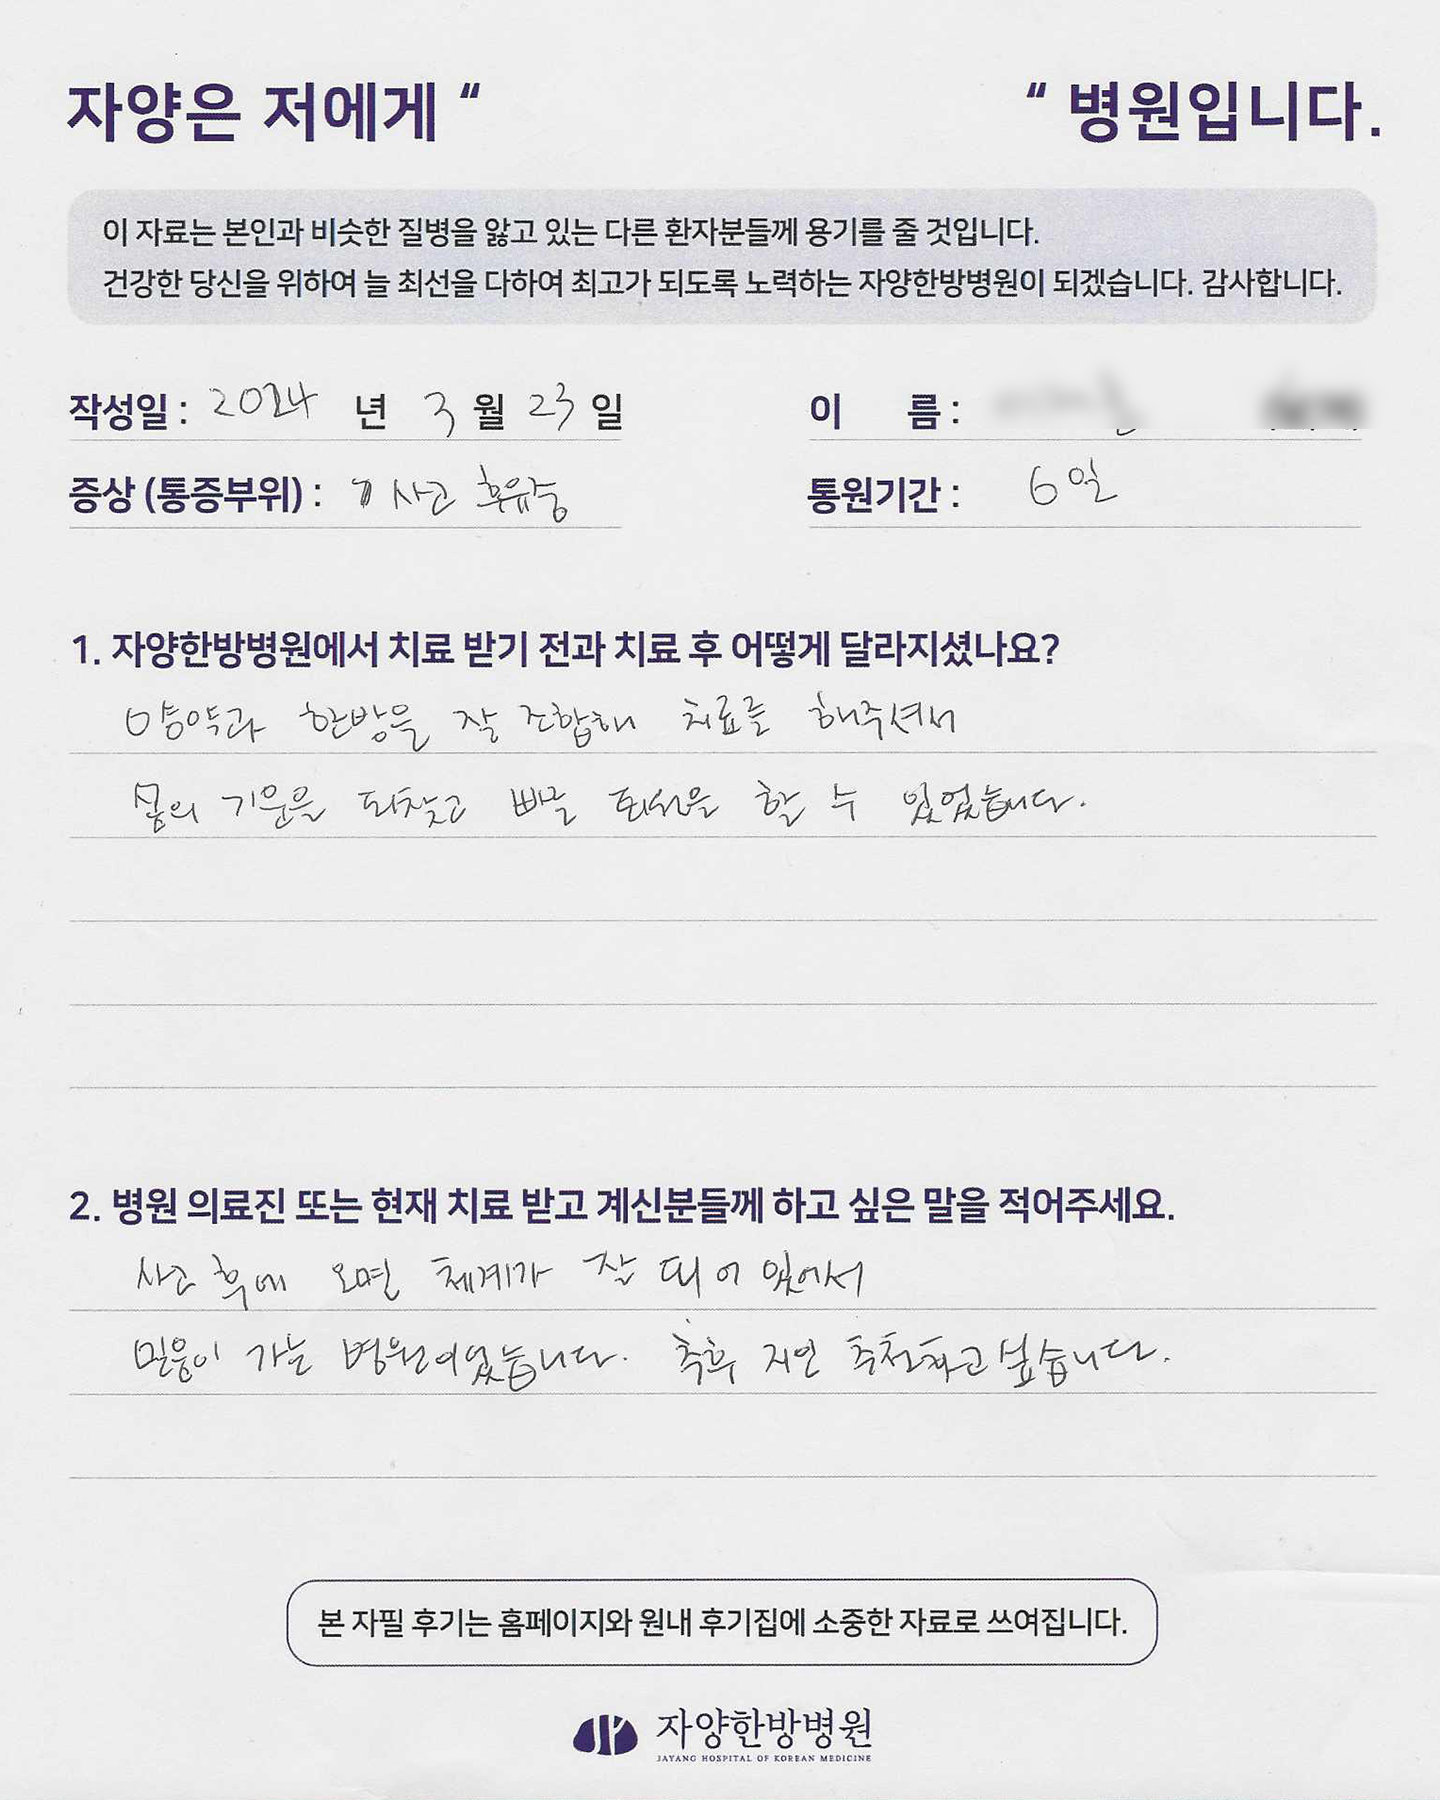 자양은 저에게 “ “ 병원입니다.
이 자료는 본인과 비슷한 질병을 앓고 있는 다른 환자분들께 용기를 줄 것입니다.
건강한 당신을 위하여 늘 최선을 다하여 최고가 되도록 노력하는 자양한방병원이 되겠습니다. 감사합니다.
작성일 : 2024 년 3 월 23 일 이 름 :
증상 (통증부위) : 사고 후유증 통원기간 : 6일
1. 자양한방병원에서 치료 받기 전과 치료 후 어떻게 달라지셨나요?
양약과 한방을 잘 조합해 치료를 해주셔서
몸의 기운을 되찾고 빠른 회복을 할 수 있었습니다.
2. 병원 의료진 또는 현재 치료 받고 계신분들께 하고 싶은 말을 적어주세요.
사고 후에 오면 체계가 잘 되어 있어서
믿음이 가는 병원이었습니다. 추후 지인 추천하고싶습니다.
본 자필 후기는 홈페이지와 원내 후기집에 소중한 자료로 쓰여집니다.
자양한방병원
JAYANG HOSPITAL OF KOREAN MEDICINE